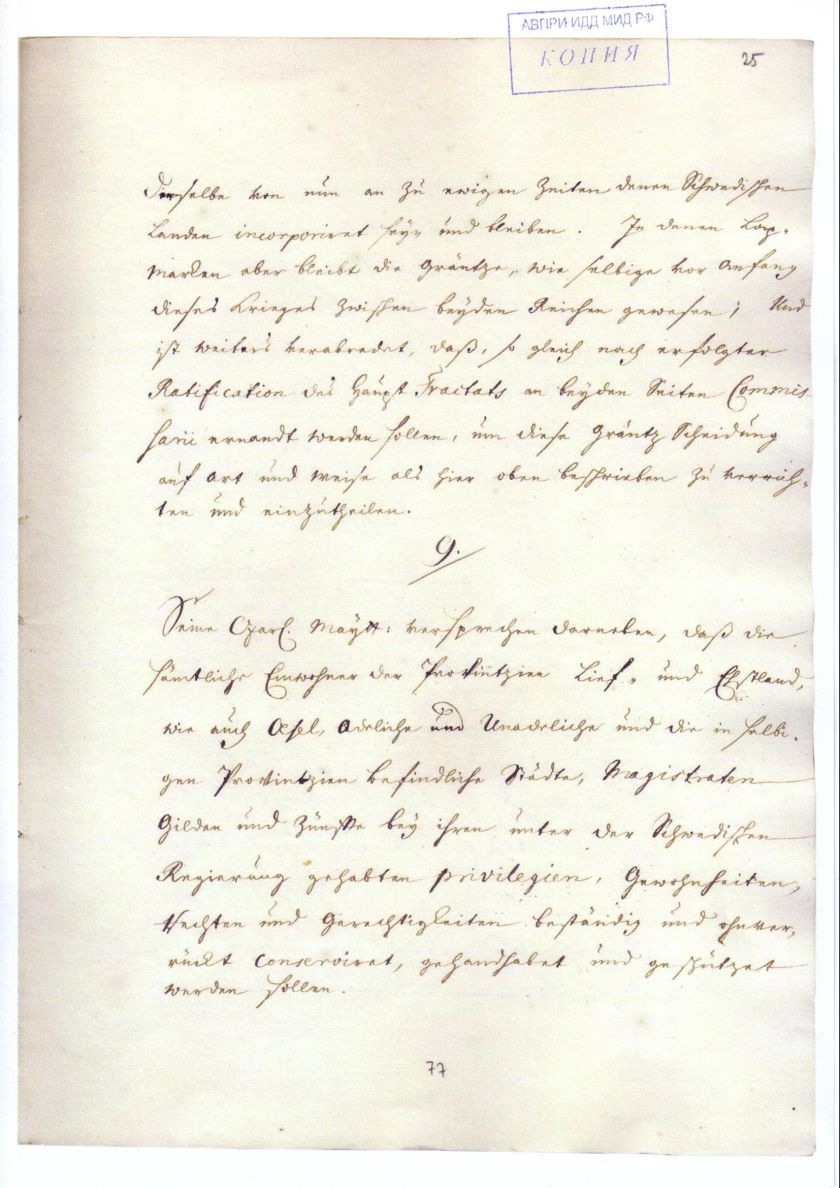 АВПРИ ИДД МИД РФ
КОПИЯ
25
dieselbe von nun an zu ewigen Zeiten denen Schwedischen
Landen incorporiret seyn und bleiben. In denen Lap-
marken aber bleibt die Gräntze, wie selbige vor Anfang
dieses Krieges zwischen beyden Reichen gewesen; Und
ist weiters verabredet, daß, so gleich nach erfolgter
Ratification des Haupt Tractats an beyden Seiten Commis
sarii ernandt werden sollen, um diese Gräntz Scheidung
auf Art und Weise als hier oben beschrieben zu verrich-
ten und einzutheilen.
9.
Seine Czarl. Maytt: versprechen darneben, daß die
sämtliche Einwohner der Provintzien Lief- und Ehstland,
wie auch Oesel, Adeliche und Unadeliche und die in selbi-
gen Provintzien befindliche Städte, Magistraten
Gilden und Zünffte bey ihren unter der Schwedischen
Regierung gehabten privilegien, Gewohnheiten,
Rechten und Gerechtigkeiten beständig und ohnver-
rückt conserviret, gehandhabet und geschützet
werden sollen.
77